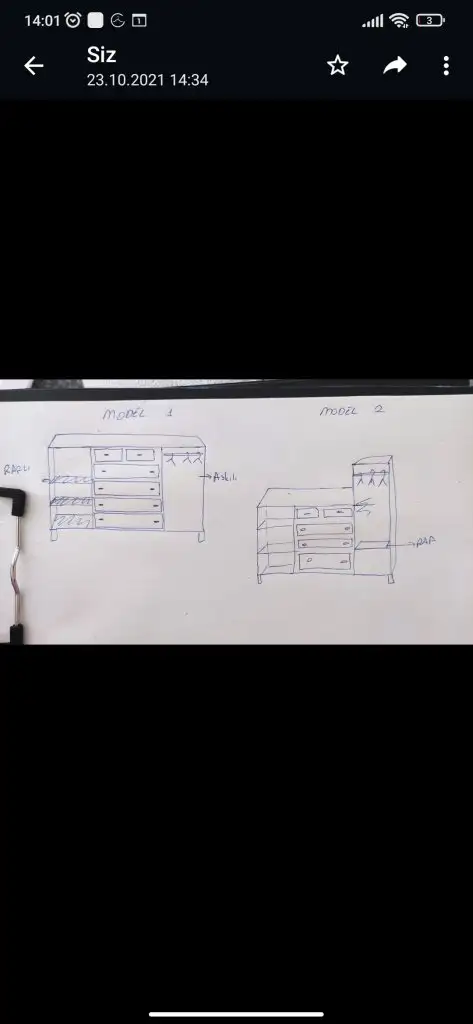 14:01
3
Siz
23.10.2021 14:34
MODEL 1
MODEL 2
RAFLI
Askılı
RAF